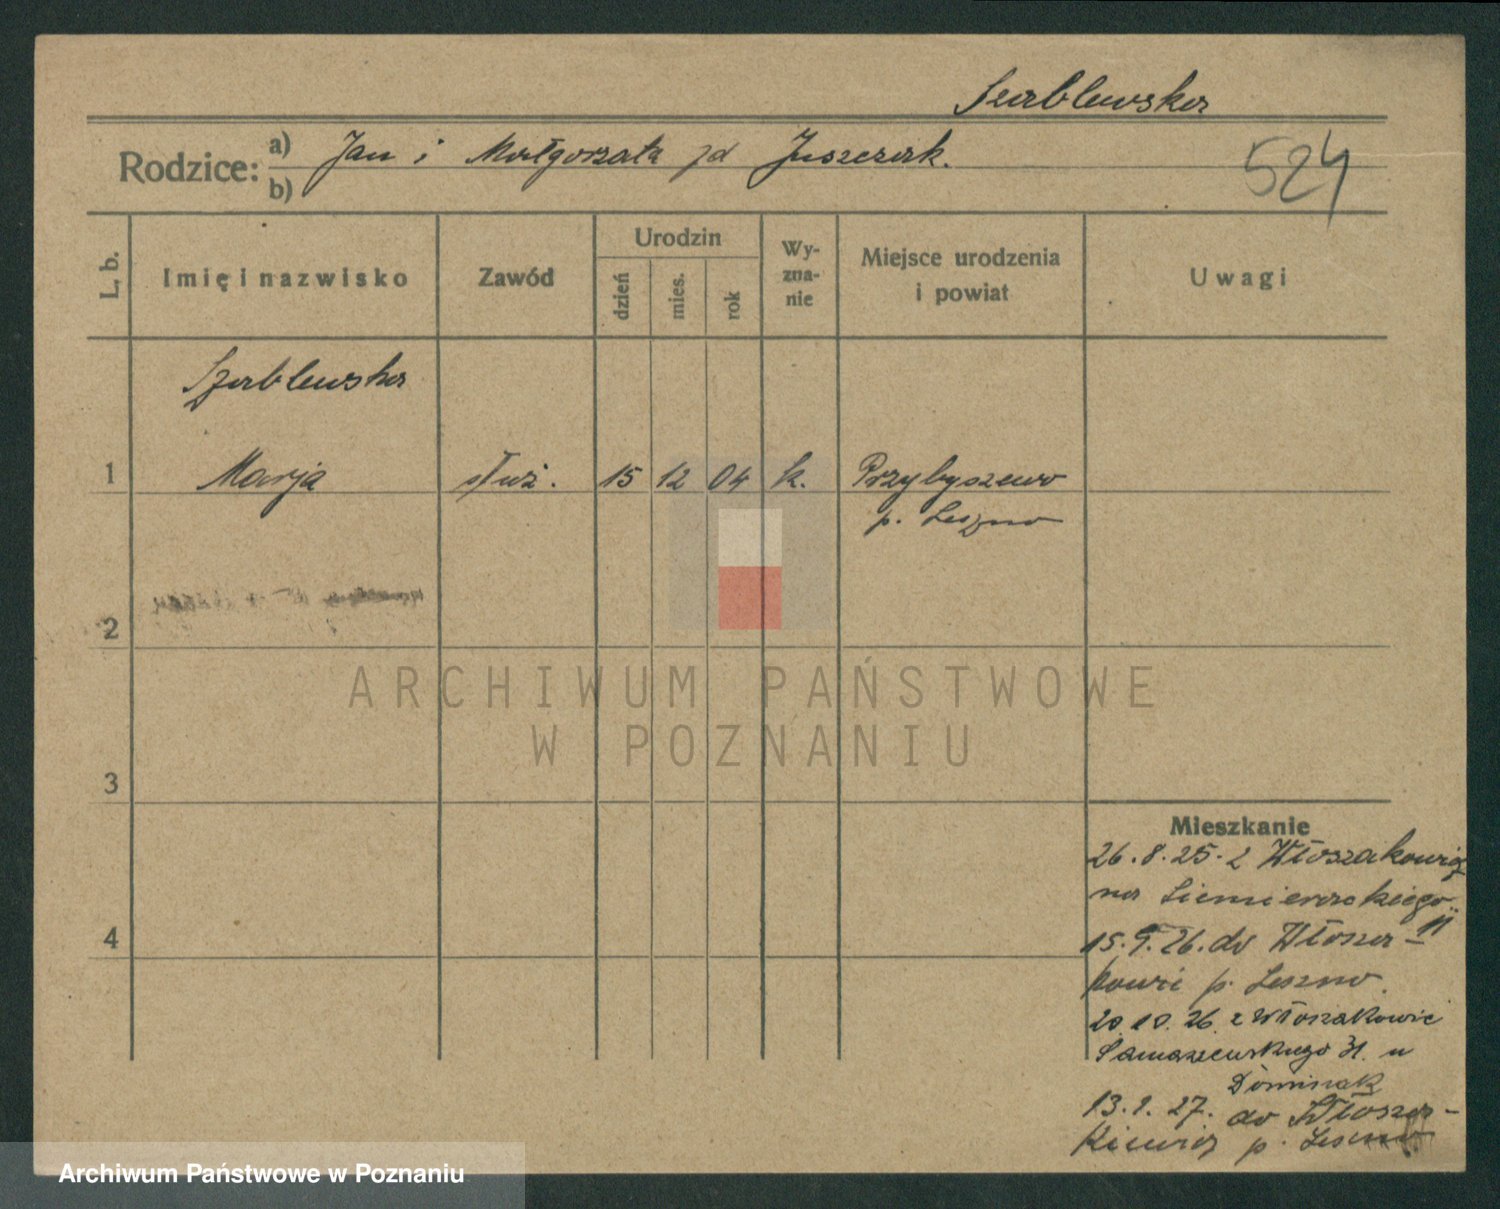 Szablewska
Rodzice: a) Jan i Małgorzata zd Juszczak.
b)
524
L. b.
Imię i nazwisko
Zawód
Urodzin
dzień
mies.
rok
Wy-
zna-
nie
Miejsce urodzenia
i powiat
Uwagi
Szablewska
1 Marja służ. 15 12 04 k. Przybyszewo
p. Leszno
2
3
4
Mieszkanie
26.8.25. z Włoszakowic
na Siemieradzkiego
11
15.9.26. do Włosza-
kowic p. Leszno.
20.10.26. z Włoszakowic
Samarzewskiego 31. u
Dominiak
13.1.27. do Włosza-
kiewic p. Leszno
ARCHIWUM PAŃSTWOWE
W POZNANIU
Archiwum Państwowe w Poznaniu